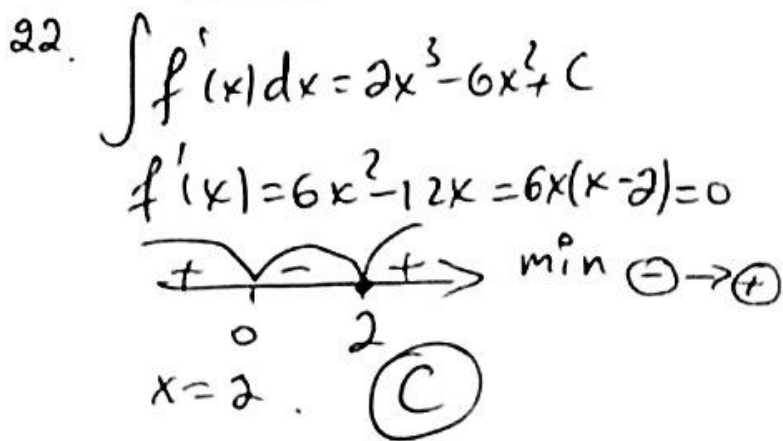 22. ∫ f'(x)dx = 2x³ - 6x² + C
f'(x) = 6x² - 12x = 6x(x-2) = 0
+ - + min ⊖→⊕
0 2
x = 2 . C